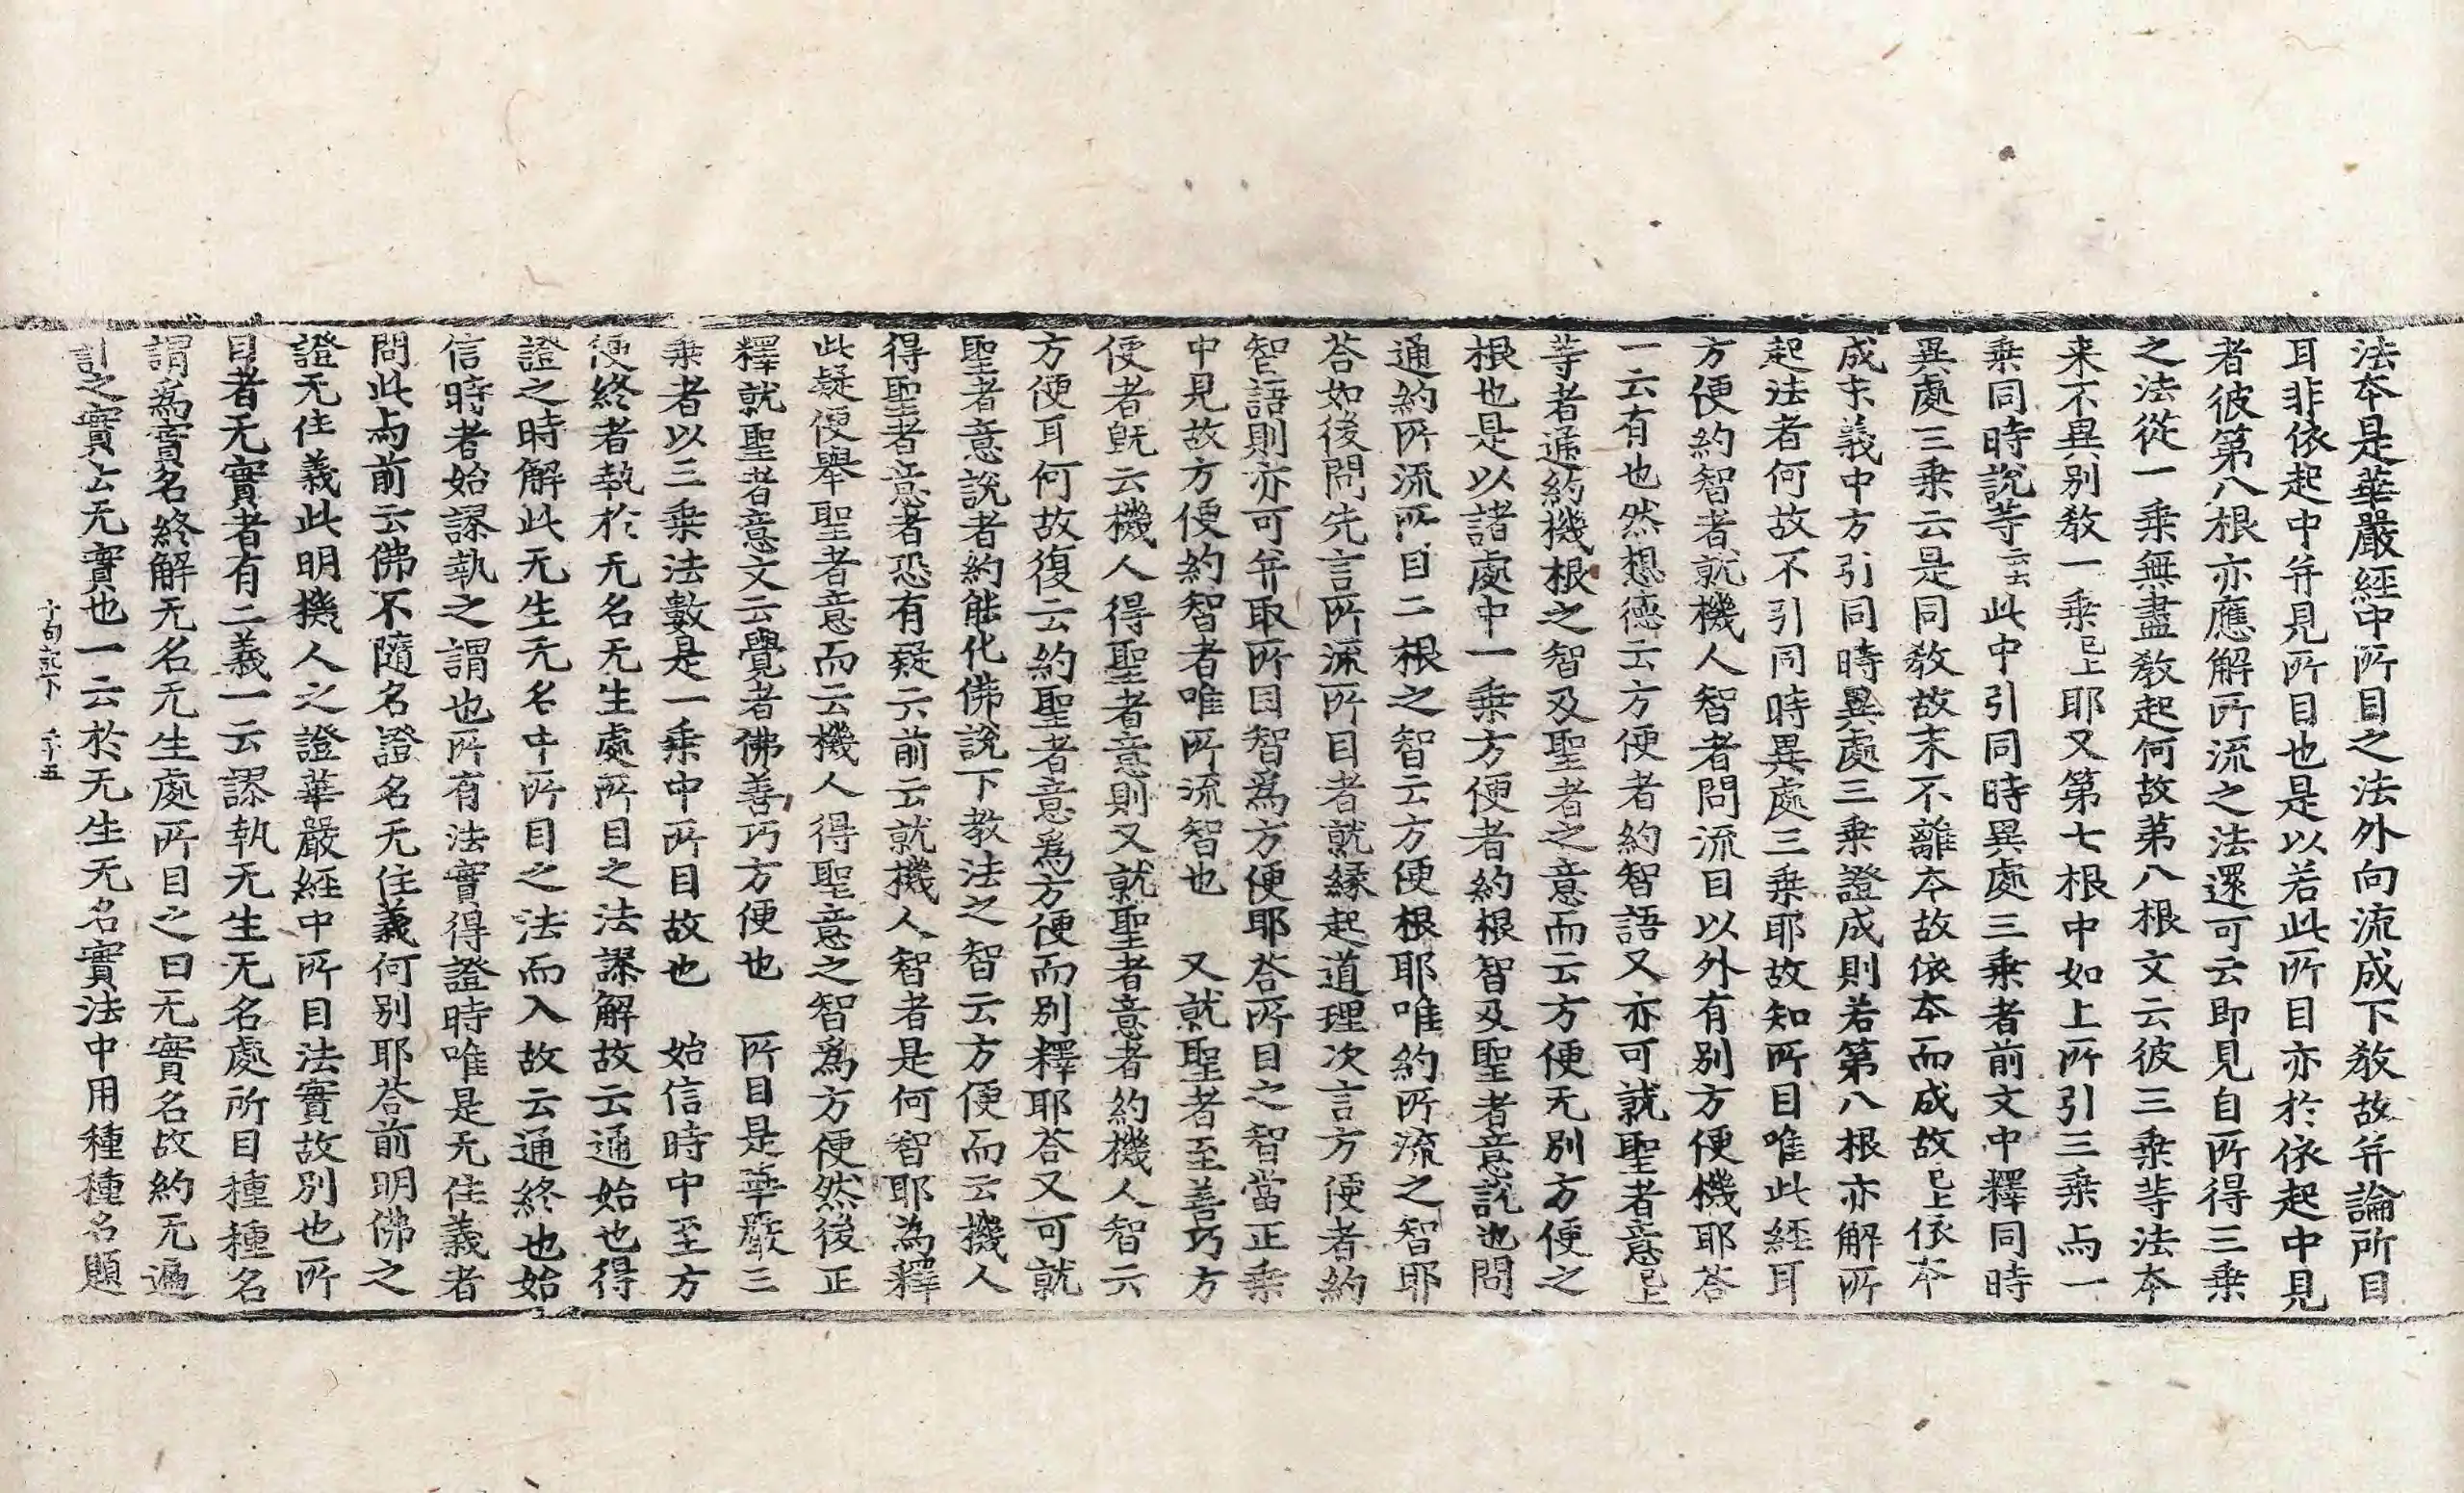 法本是華嚴經中所目之法外向流成下敎故并論所目
耳非依起中并見所目也是以若此所目亦於依起中見
者彼第八根亦應解所流之法還可云即見自所得三乗
之法從一乗無盡敎起何故第八根文云彼三乗䓁法本
来不異別敎一乗已上耶又第七根中如上所引三乗与一
乗同時說䓁云云此中引同時異處三乗者前文中釋同時
異處三乗云是同敎故末不離本故依本而成故已上依本
成末義中方引同時異處三乗證成則若第八根亦解所
起法者何故不引同時異處三乗耶故知所目唯此經耳
方便約智者就機人智者問流目以外有別方便機耶荅
一云有也然想德云方便者約智語又亦可就聖者意已上
䓁者通約機根之智及聖者之意而云方便无別方便之
根也是以諸處中一乗方便者約根智及聖者意說也問
通約所流所目二根之智云方便根耶唯約所流之智耶
荅如後問先言所流所目者就縁起道理次言方便者約
智語則亦可并取所目智爲方便耶荅所目之智當正乗
中見故方便約智者唯所流智也　又就聖者至善巧方
便者旣云機人得聖者意則又就聖者意者約機人智云
方便耳何故復云約聖者意爲方便而別釋耶荅又可就
聖者意說者約能化佛說下敎法之智云方便而云機人
得聖者意者恐有疑云前云就機人智者是何智耶為釋
此疑便舉聖者意而云機人得聖意之智爲方便然後正
釋就聖者意文云覺者佛善巧方便也　所目是華嚴三
乗者以三乗法數是一乗中所目故也　始信時中至方
便終者執於无名无生處所目之法謬解故云通始也得
證之時解此无生无名中所目之法而入故云通終也始
信時者始謬執之謂也所有法實得證時唯是无住義者
問此与前云佛不隨名證名无住義何別耶荅前明佛之
證无住義此明機人之證華嚴經中所目法實故別也所
目者无實者有二義一云謬執无生无名處所目種種名
謂爲實名終解无名无生處所目之曰无實名故約无遍
計之實云无實也一云於无生无名實法中用種種名題
十句記下　丈十五